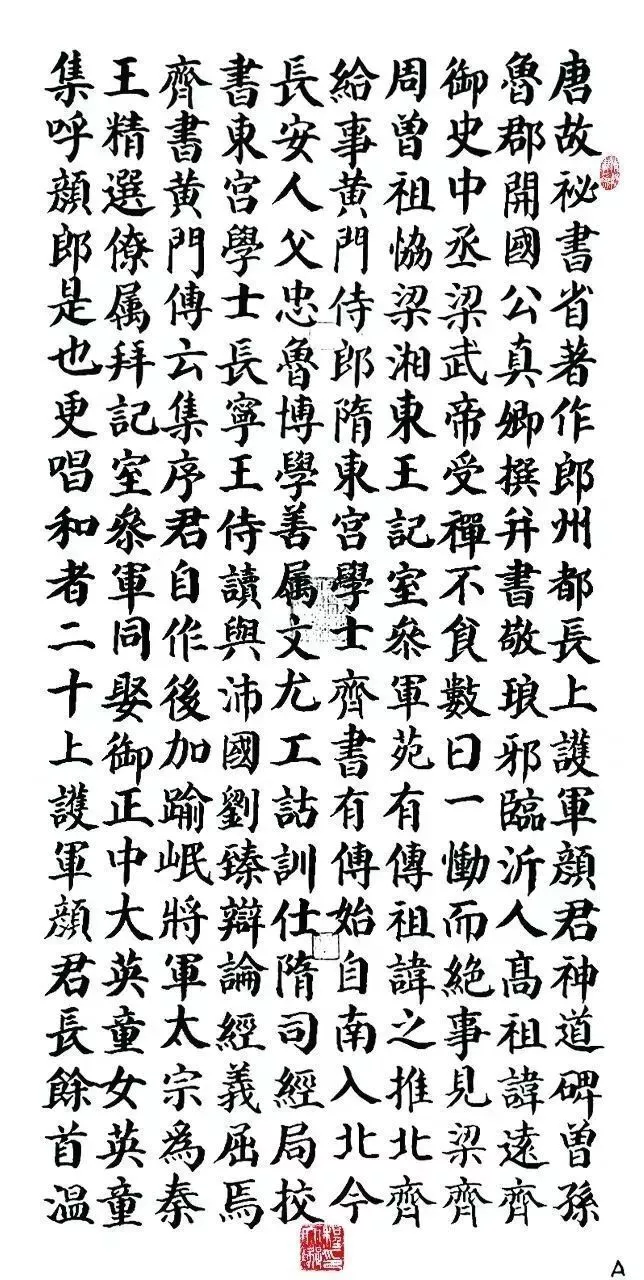 唐故祕書省著作郎州都長上護軍顔君神道碑曾孫
魯郡開國公真卿撰并書敬琅邪臨沂人髙祖諱遠齊
御史中丞梁武帝受禪不食數日一慟而絶事見梁齊
周曾祖恊梁湘東王記室叅軍苑有傳祖諱之推北齊
給事黄門侍郎隋東宮學士齊書有傳始自南入北今
長安人父忠魯博學善属文尤工詁訓仕隋司經局挍
書東宮學士長寧王侍讀與沛國劉臻辯論經義屈焉
齊書黄門傳云集序君自作後加踰岷將軍太宗為秦
王精選僚属拜記室叅軍同娶御正中大英童女英童
集呼顔郎是也更唱和者二十上護軍顔君長餘首温
A